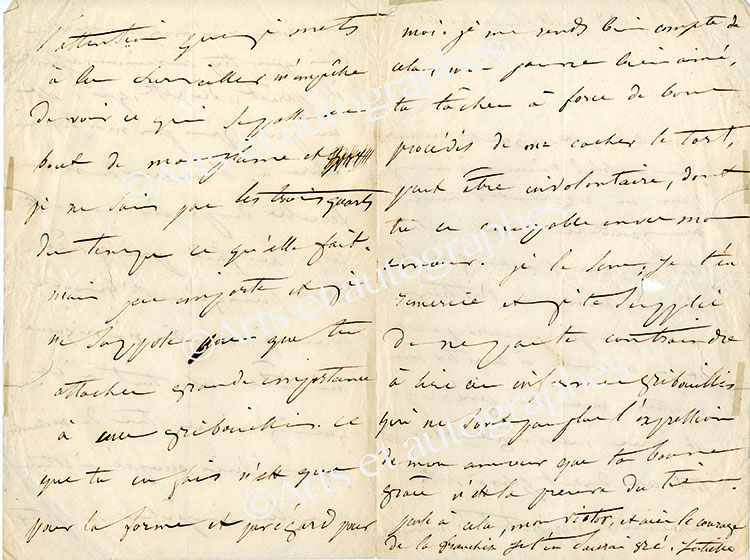 l'attention que je mets
à te surveiller m'empêche
de voir ce qui se passe au
bout de ma plume et
je ne sais pas les trois quarts
du temps ce qu'elle fait.
mais que importe et je
ne suppose pas que tu
attaches grande importance
à ces gribouillis. Ce
que tu en fais n'est que
pour la forme et par égard pour
moi. je me rends bien compte de
cela, mon pauvre bien aimé,
tu tâches à force de bons
procédés de me cacher le tort,
peut être involontaire, dont
tu es coupable envers mon
amour. je le sens, je t'en
remercie et je te supplie
de ne pas te contraindre
à lire ces informes gribouillis
qui ne sont pas plus l'expression
de mon amour que ta bonne
grâce n'est la preuve du tien.
pense à cela, mon Victor, et aie le courage
de la franchise, je t'en saurai gré. Juliette
©Arts et autographes
©Arts et autographes
©Arts et autographes